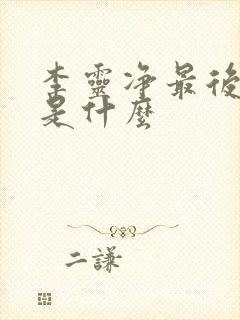 李靈净最後
是什麼
二謙